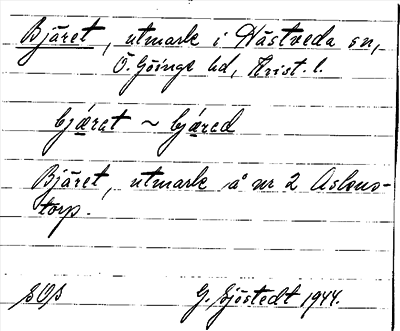 Bjäret, utmark i Hästveda sn,
Ö. Göinge hd, Krist. l.
bjæ̀rət ~ bjæ̀red
Bjäret, utmark å nr 2 Aslons-
torp.
SOS
G. Sjöstedt 1944.